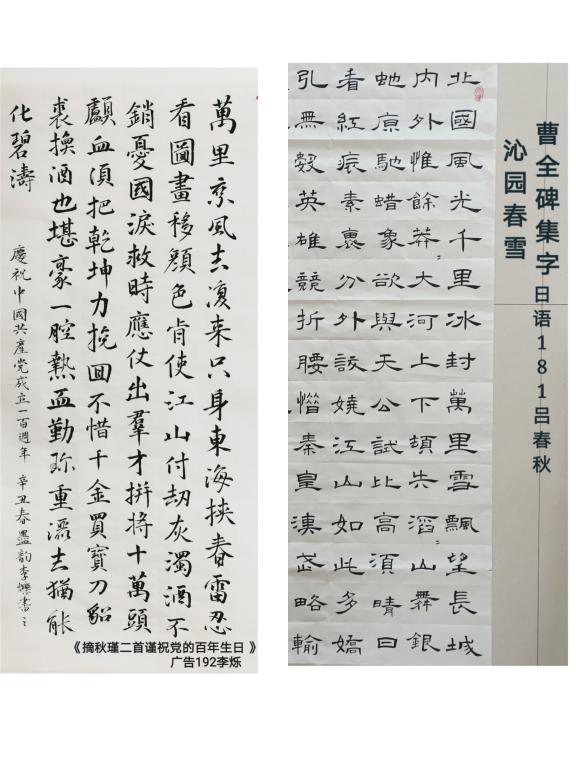 萬里乘風去復來只身東海挾春雷忍
看圖畫移顏色肯使江山付劫灰濁酒不
銷憂國淚救時應仗出羣才拼將十萬頭
顱血須把乾坤力挽回不惜千金買寶刀貂
裘換酒也堪豪一腔熱血勤珍重灑去猶能
化碧濤
慶祝中國共產党成立一百週年 辛丑春墨韵李爍書之
《摘秋瑾二首谨祝党的百年生日 》
广告192李烁
曹全碑集字日语181吕春秋
沁园春雪
北國風光千里冰封萬里雪飄望長城
内外惟餘莽大河上下頓失滔山舞銀
虵原馳蜡象欲與天公試比高須晴日
看紅素裹分外嬈江山如此多嬌
引無數英雄競折腰惜秦皇漢武略輸